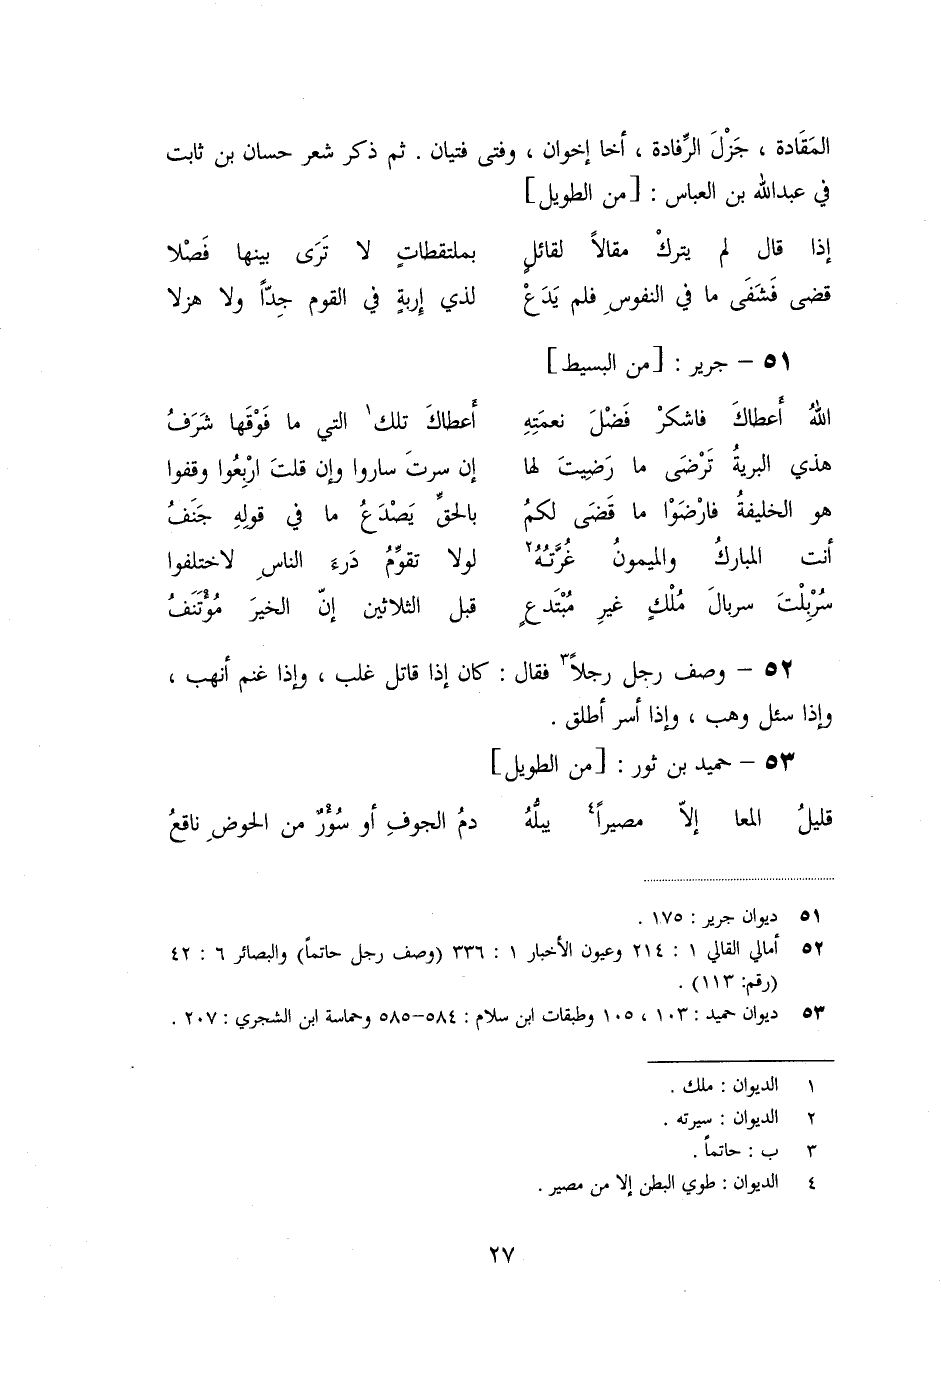 المَقَادة ، جَزْلَ الرِّفادة ، أخا إخوان ، وفتى فتيان . ثم ذكر شعر حسان بن ثابت
في عبدالله بن العباس : [من الطويل]
إذا قال لم يتركْ مقالاً لقائلٍ بملتقطاتٍ لا تَرَى بينها فَصْلا
قضى فَشَفَى ما في النفوسِ فلم يَدَعْ لذي إربةٍ في القوم جِدّاً ولا هزلا
٥١ – جرير : [من البسيط]
اللهُ أعطاكَ فاشكرْ فَضْلَ نعمَتِهِ أعطاكَ تلك١ التي ما فَوْقَها شَرَفُ
هذي البريةُ تَرْضَى ما رَضِيتَ لها إن سرتَ ساروا وإن قلتَ ارْبِعُوا وقفوا
هو الخليفةُ فارْضَوْا ما قَضَى لكمُ بالحقِّ يَصْدَعُ ما في قولِهِ جَنَفُ
أنت المباركُ والميمونُ غُرَّتُهُ٢ لولا تقوِّمُ دَرءَ الناسِ لاختلفوا
سُرْبِلْتَ سربالَ مُلْكٍ غيرِ مُبْتَدعٍ قبل الثلاثين إنّ الخيرَ مُؤْتَنَفُ
٥٢ – وصف رجل رجلاً٣ فقال : كان إذا قاتل غلب ، وإذا غنم أنهب ،
وإذا سئل وهب ، وإذا أسر أطلق .
٥٣ – حميد بن ثور : [من الطويل]
قليلُ المعا إلاّ مصيراً٤ يبلُّهُ دمُ الجوفِ أو سُؤْرٌ من الحوضِ ناقعُ
٥١ ديوان جرير : ١٧٥ .
٥٢ أمالي القالي ١ : ٢١٤ وعيون الأخبار ١ : ٣٣٦ (وصف رجل حاتماً) والبصائر ٦ : ٤٢
(رقم: ١١٣) .
٥٣ ديوان حميد : ١٠٣ ، ١٠٥ وطبقات ابن سلام : ٥٨٤–٥٨٥ وحماسة ابن الشجري : ٢٠٧ .
١ الديوان : ملك .
٢ الديوان : سيرته .
٣ ب : حاتماً .
٤ الديوان : طوي البطن إلا من مصير .
٢٧